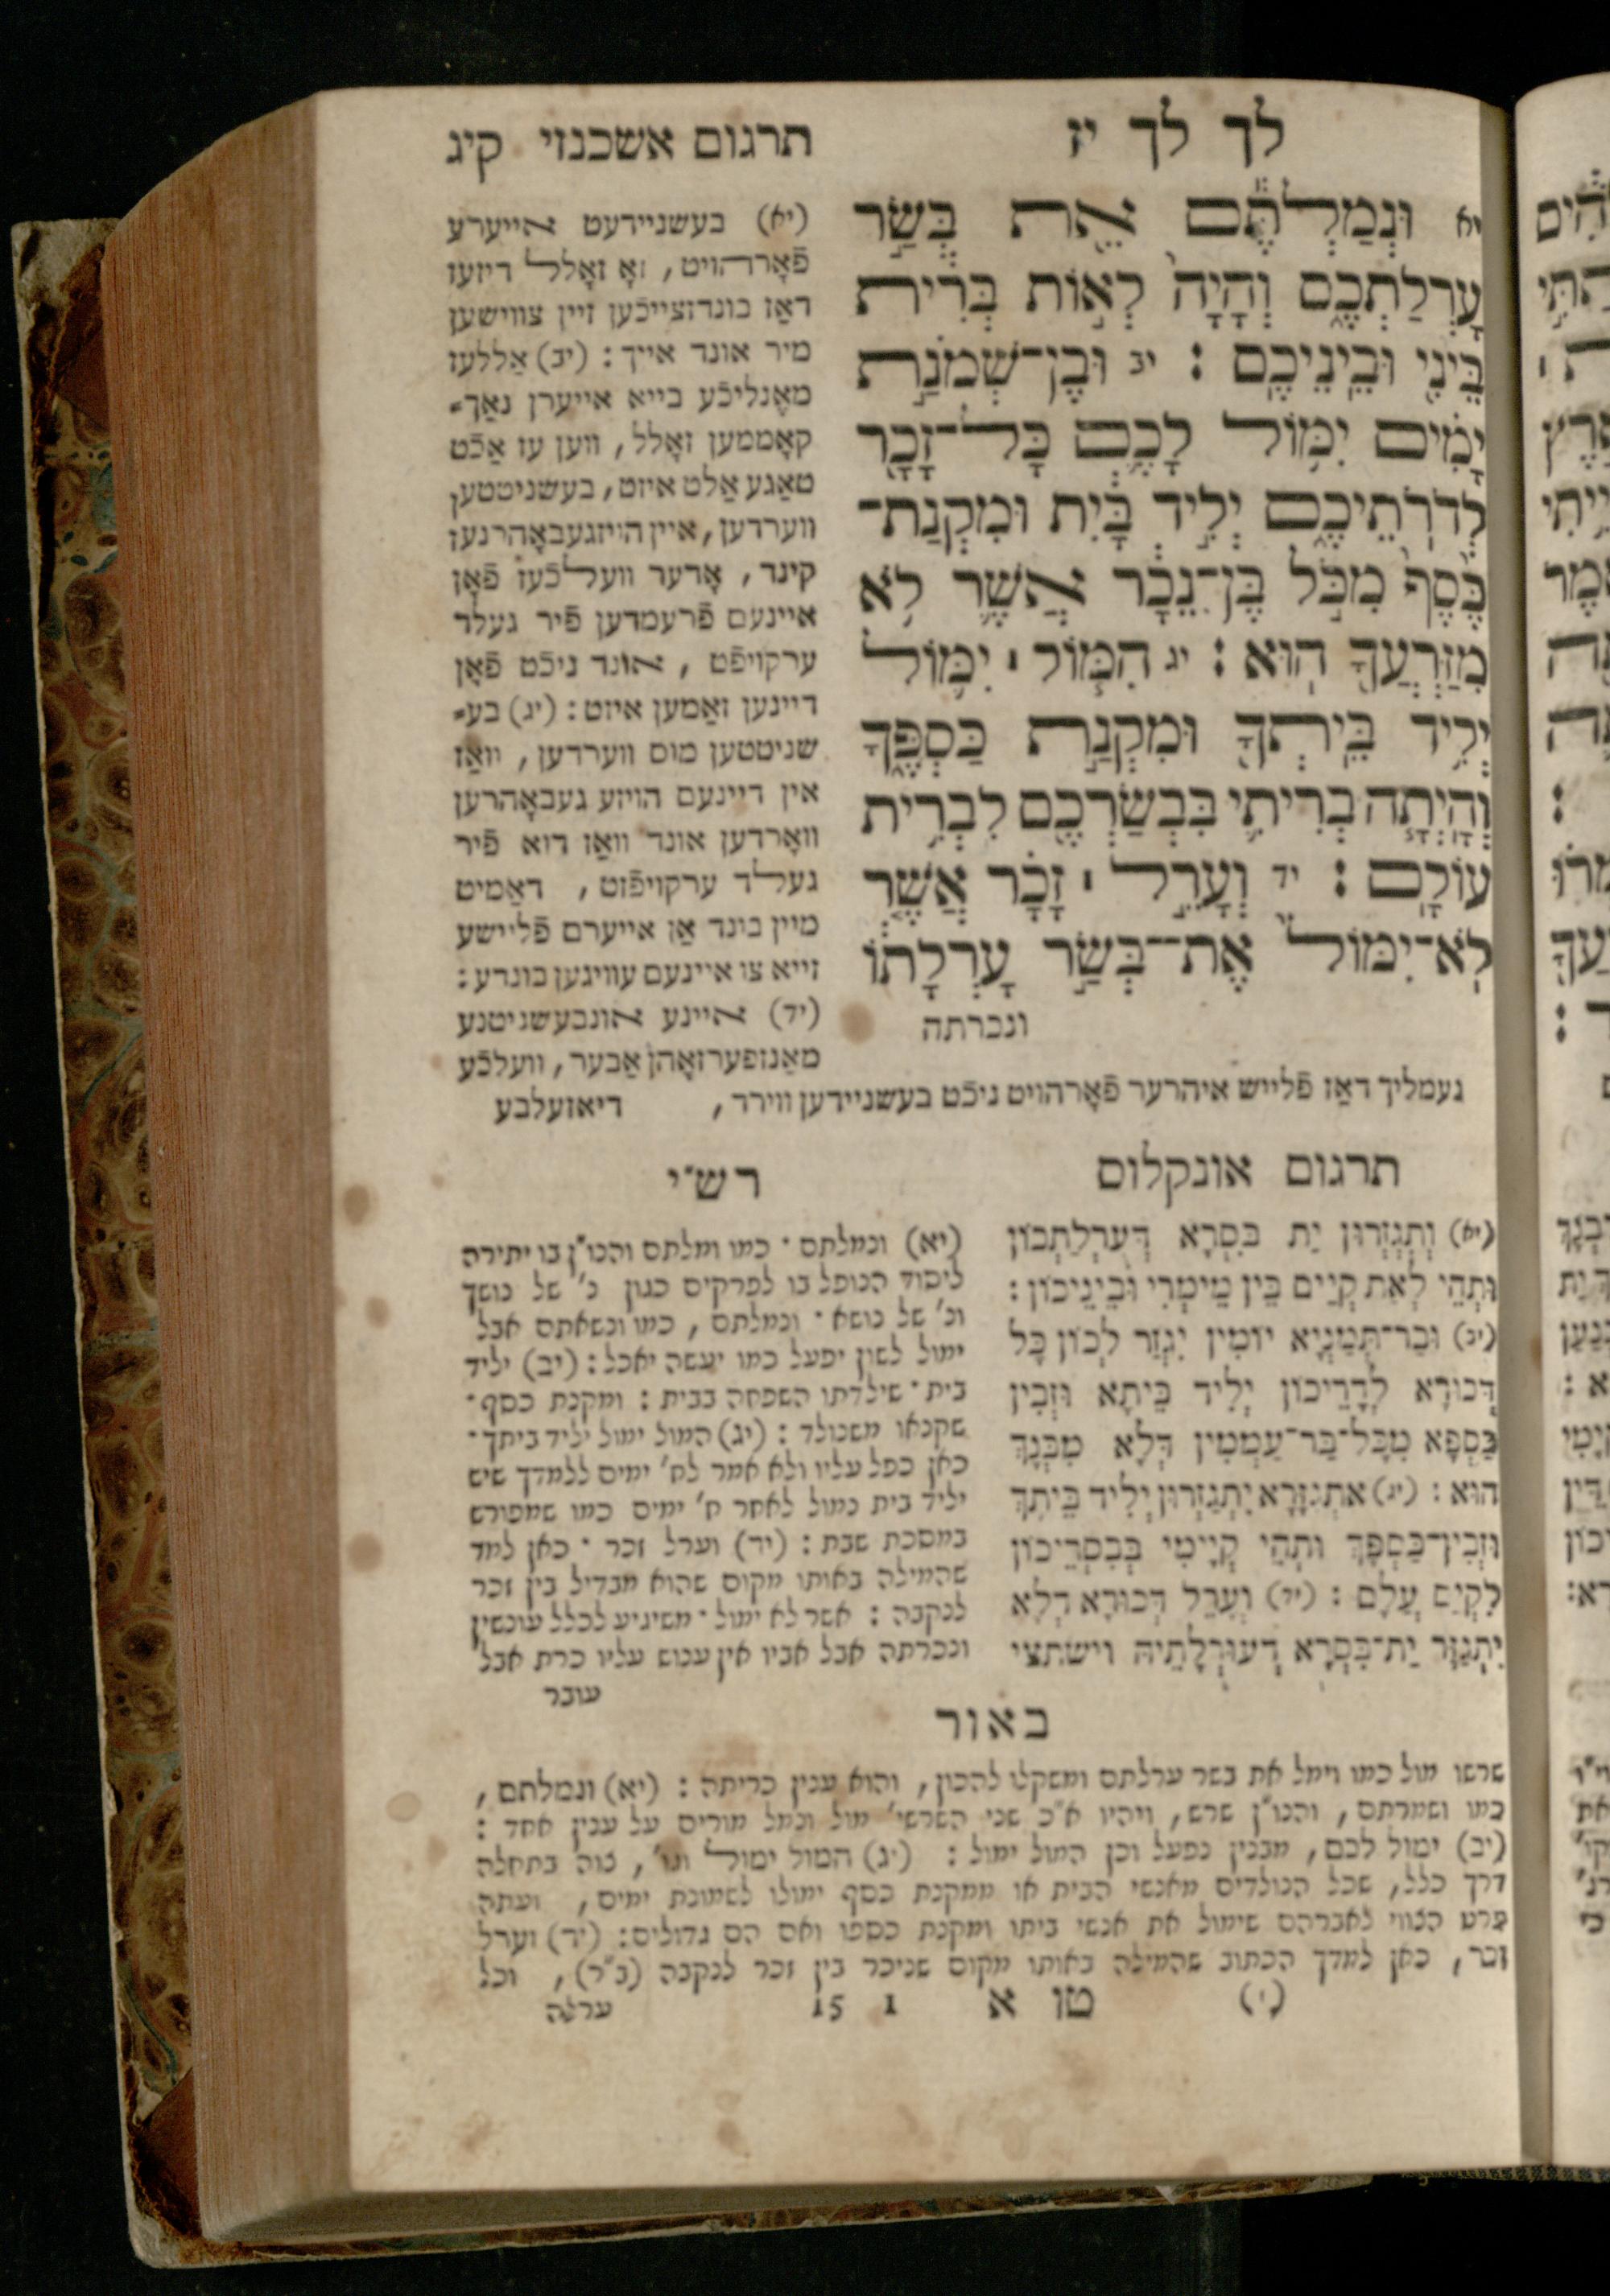 לך לך יז
תרגום אשכנזי קיג
יא וּנְמַלְתֶּ֕ם אֵ֖ת בְּשַׂ֣ר
עָרְלַתְכֶ֑ם וְהָיָה֙ לְא֣וֹת בְּרִ֔ית
בֵּינִ֖י וּבֵינֵיכֶֽם : יב וּבֶן־שְׁמֹנַ֣ת
יָמִ֗ים יִמּ֥וֹל לָכֶ֛ם כָּל־זָכָ֖ר
לְדֹרֹתֵיכֶ֑ם יְלִ֣יד בָּ֔יִת וּמִקְנַת־
כֶּ֙סֶף֙ מִכֹּ֣ל בֶּן־נֵכָ֔ר אֲשֶׁ֛ר לֹ֥א
מִֽזַּרְעֲךָ֖ הֽוּא : יג הִמּ֧וֹל ׀ יִמּ֛וֹל
יְלִ֥יד בֵּֽיתְךָ֖ וּמִקְנַ֣ת כַּסְפֶּ֑ךָ
וְהָיְתָ֧ה בְרִיתִ֛י בִּבְשַׂרְכֶ֖ם לִבְרִ֥ית
עוֹלָֽם : יד וְעָרֵ֣ל ׀ זָכָ֗ר אֲשֶׁ֤ר
לֹֽא־יִמּוֹל֙ אֶת־בְּשַׂ֣ר עָרְלָת֔וֹ
ונכרתה
(יא) בעשניידעט אייערע
פֿאָרהויט, זאָ זאָלל דיזעז
דאַז בונדזצייכֿען זיין צווישען
מיר אונד אייך : (יב) אַללעז
מאֶנליכֿע בייא אייערן נאַך־
קאָממען זאָלל, ווען עז אַכֿט
טאַגע אַלט איזט, בעשניטטען
ווערדען, איין הויזגעבאָהרנעז
קינד, אָדער וועלכֿעז פֿאָן
איינעם פֿרעמדען פֿיר געלד
ערקויפֿט, אונד ניכֿט פֿאָן
דיינען זאַמען איזט : (יג) בע־
שניטטען מוס ווערדען, וואַז
אין דיינעם הויזע געבאָהרען
וואָרדען אונד וואַז דוא פֿיר
געלד ערקויפֿזט, דאַמיט
מיין בונד אַן אייערם פֿליישע
זייא צו איינעם עוויגען בונדע :
(יד) איינע אונבעשניטנע
מאַנזפערזאָהן אַבער, וועלכֿע
נעמליך דאַז פֿלייש איהרער פֿאָרהויט ניכֿט בעשניידען ווירד, דיאזעלבע
תרגום אונקלוס
(יא) וְתִגְזְרוּן יָת בִּסְרָא דְעָרְלַתְכוֹן
וּתְהֵי לְאָת קְיָים בֵּין מֵימְרִי וּבֵינֵיכוֹן :
(יב) וּבַר־תְּמַנְיָא יוֹמִין יִגְזַר לְכוֹן כָּל
דְּכוּרָא לְדָרֵיכוֹן יְלִיד בֵּיתָא וּזְבִין
כַּסְפָּא מִכָּל־בַּר־עַמְמִין דְּלָא מִבְּנָךְ
הוּא : (יג) אִתְגְזָרָא יִתְגַזְרוּן יְלִיד בֵּיתָךְ
וּזְבִין־כַּסְפָּךְ וּתְהֵי קְיָימִי בְּבִסְרֵיכוֹן
לִקְיַם עֲלָם : (יד) וְעָרֵל דְּכוּרָא דְלָא
יִתְגְזַר יַת־בִּסְרָא דְעוּרְלָתֵיהּ וישתצי
רש״י
(יא) ונמלתם · כמו ומלתם והנו״ן בו יתירה
ליסוד הנופל בו לפרקים כגון נ׳ של נושך
ונ׳ של נושא · ונמלתם, כמו ונשאתם אבל
ימול לשון יפעל כמו יעשה יאכל : (יב) יליד
בית · שילדתו השפחה בבית : ומקנת כסף ·
שקנאו משנולד : (יג) המול ימול יליד ביתך ·
כאן כפל עליו ולא אמר לח׳ ימים ללמדך שיש
יליד בית נמול לאחר ח׳ ימים כמו שמפורש
במסכת שבת : (יד) וערל זכר · כאן למד
שהמילה באותו מקום שהוא מבדיל בין זכר
לנקבה : אשר לא ימול · משיגיע לכלל עונשין
ונכרתה אבל אביו אין ענוש עליו כרת אבל
עובר
באור
שרשו מול כמו וימל את בשר ערלתם ומשקלו להכון, והוא ענין כריתה : (יא) ונמלתם,
כמו ושמרתם, והנו״ן שרש, ויהיו א״כ שני השרשי׳ מול ונמל מורים על ענין אחד :
(יב) ימול לכם, מבנין נפעל וכן המול ימול : (יג) המול ימול וגו׳, צוה בתחלה
דרך כלל, שכל הנולדים מאנשי הבית או ממקנת כסף ימולו לשמונת ימים, ועתה
פרט הצווי לאברהם שימול את אנשי ביתו ומקנת כספו ואם הם גדולים : (יד) וערל
זכר, כאן למדך הכתוב שהמילה באותו מקום שניכר בין זכר לנקבה (ב״ר), וכל
(י) טו א 1 15 ערלה